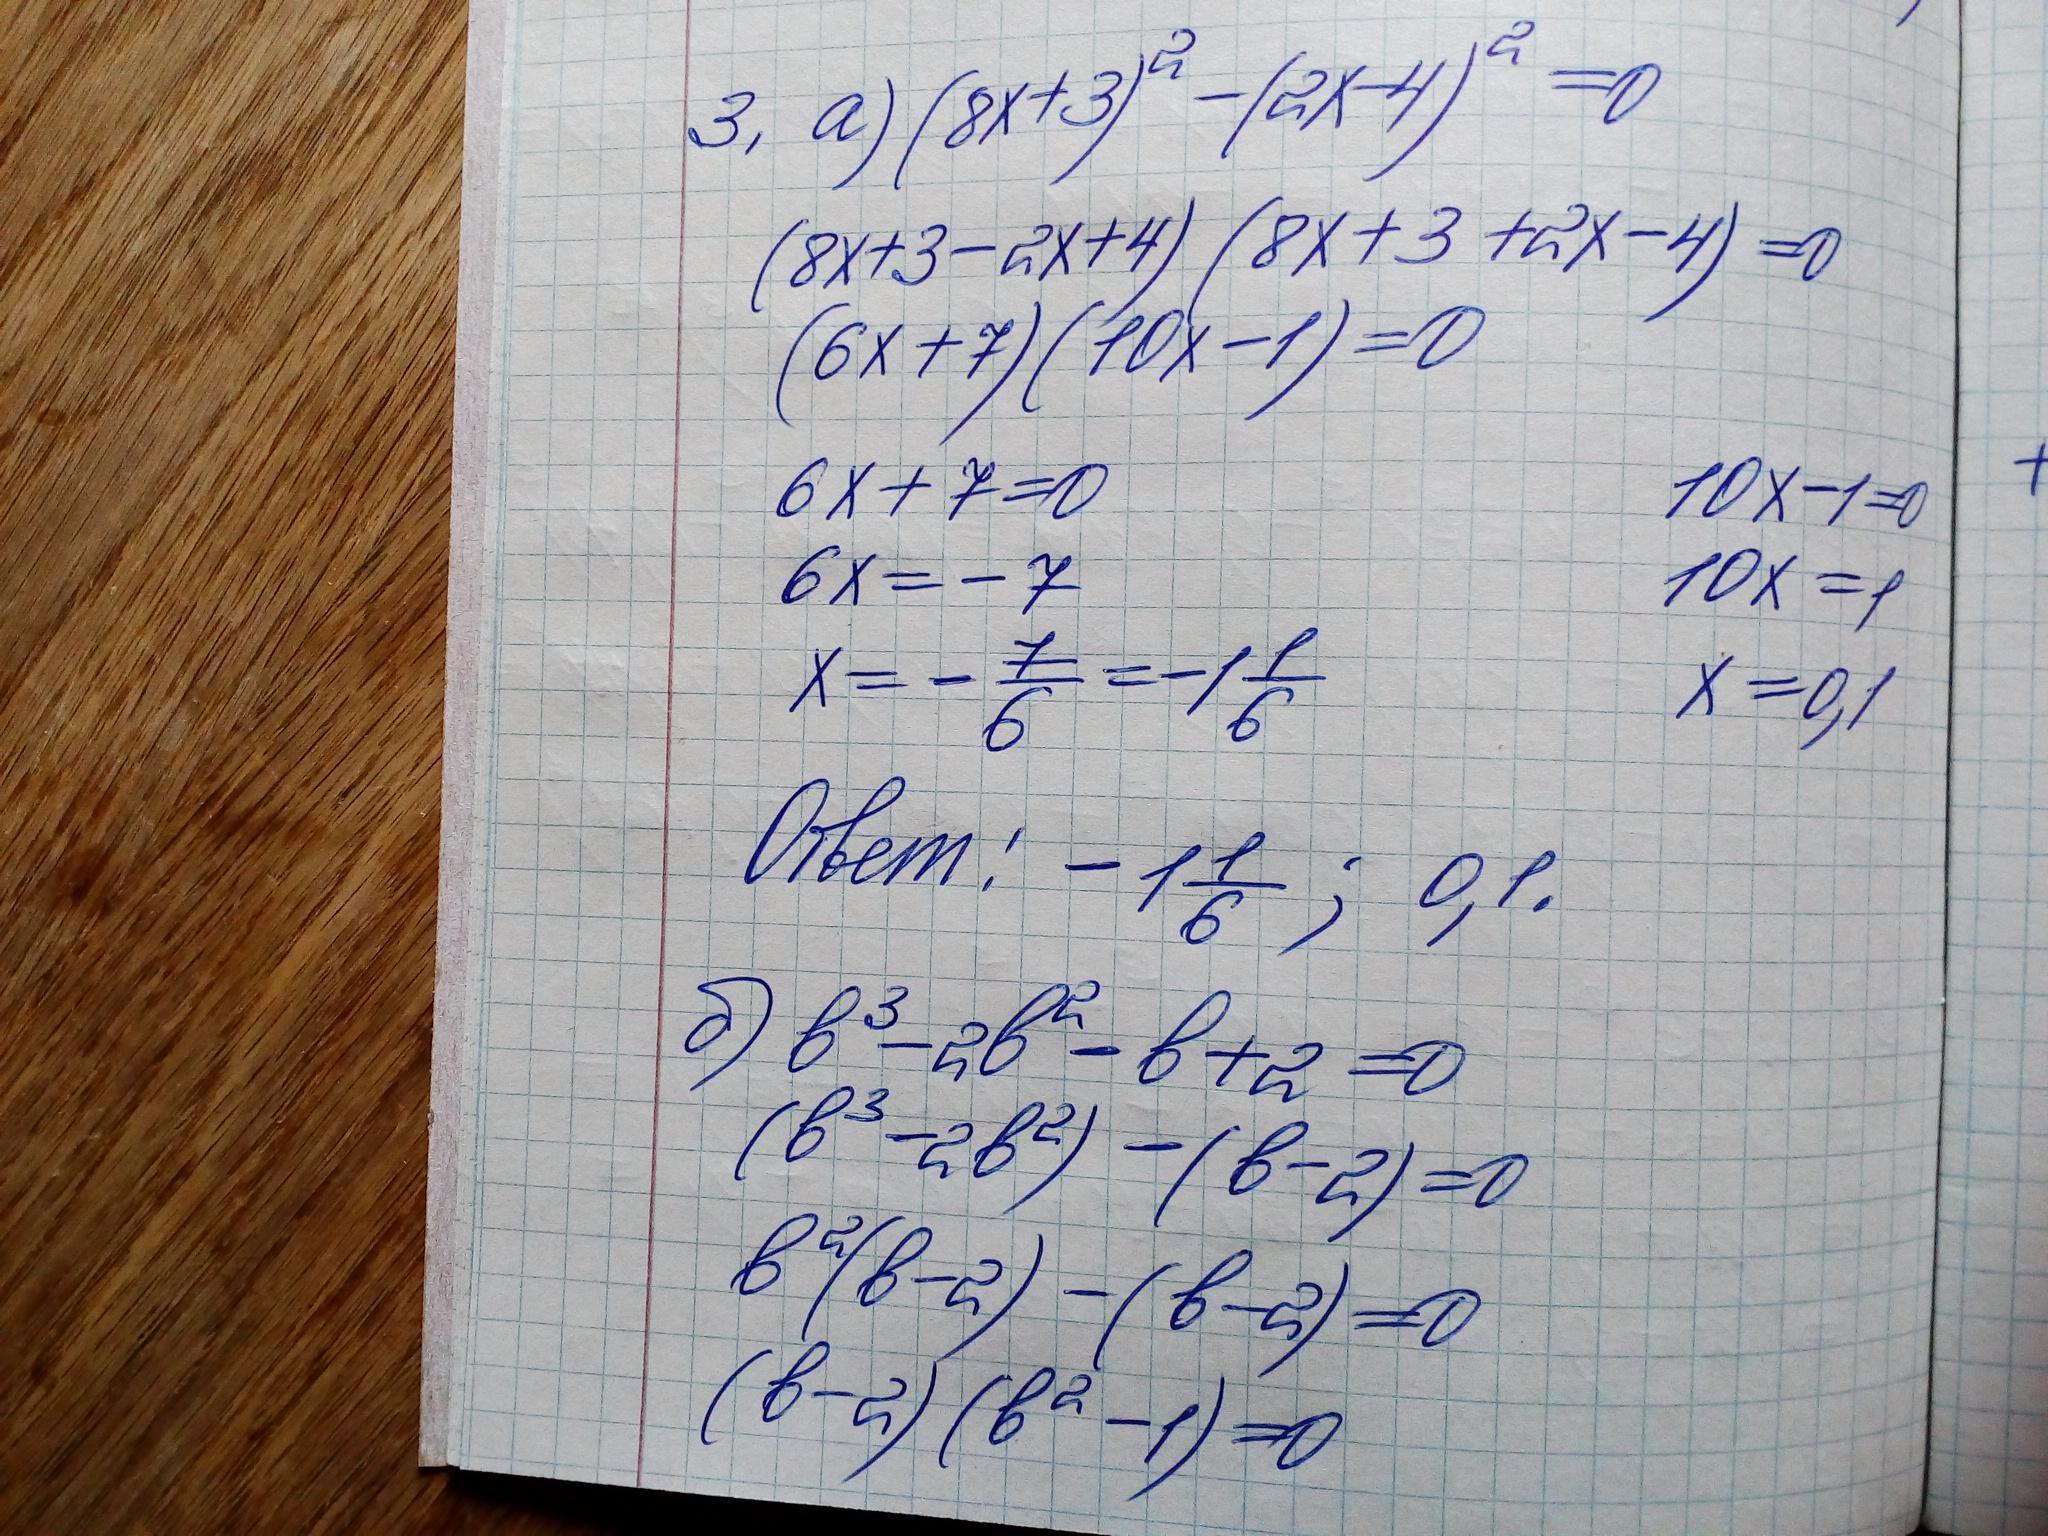 3, а) (8x+3)² -(2x-4)² =0
(8x+3-2x+4) (8x+3+2x-4)=0
(6x+7)(10x-1)=0
6x+7=0 10x-1=0
6x=-7 10x=1
x=-7/6=-1 1/6 x=0,1
Ответ: -1 1/6; 0,1.
б) b³-2b²-b+2=0
(b³-2b²)-(b-2)=0
b²(b-2)-(b-2)=0
(b-2)(b²-1)=0
+